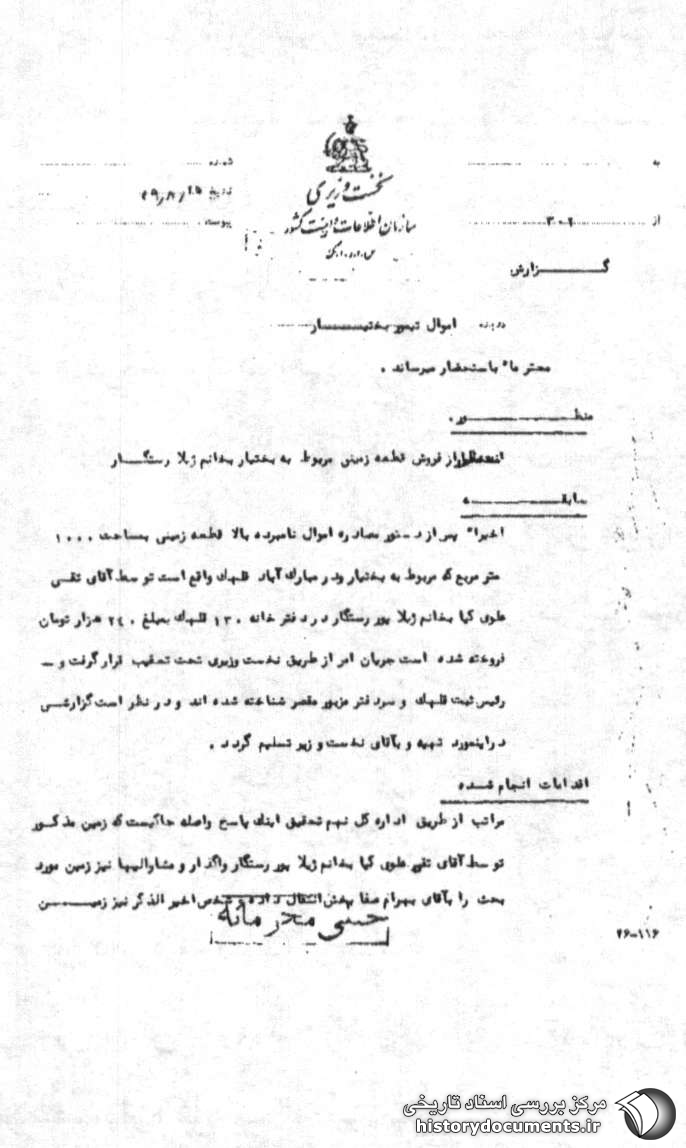 نخست وزیری
سازمان اطلاعات و امنیت کشور
س.ا.و.ا.ک
به
شماره
تاریخ
از ۳۰۲
پیوست
گزارش
درباره اموال تیمور بختیار
محترماً باستحضار میرساند .
منظور .
از فروش قطعه زمینی مربوط به بختیار بخانم ژیلا رستگار
سابقه
اخیراً پس از دستور مصادره اموال نامبرده بالا قطعه زمینی بمساحت ۱۰۰۰
متر مربع که مربوط به بختیار و در مبارک آباد قلهک واقع است توسط آقای تقی
علوی کیا بخانم ژیلا پور رستگار در دفتر خانه ۱۳۰ قلهک بمبلغ ۲۴۰ هزار تومان
فروخته شده است جریان امر از طریق نخست وزیری تحت تعقیب قرار گرفت و -
رئیس ثبت قلهک و سر دفتر مزبور مقصر شناخته شده اند و در نظر است گزارشی
در اینمورد تهیه و بآقای نخست وزیر تسلیم گردد .
اقدامات انجام شده
مراتب از طریق اداره کل نهم تحقیق اینک پاسخ واصله حاکیست که زمین مذکور
توسط آقای تقی علوی کیا بخانم ژیلا پور رستگار واگذار و مشارالیها نیز زمین مورد
بحث را بآقای بهرام صفا بخش انتقال داده و شخص اخیر الذکر نیز زمین
خیلی محرمانه
۲۶-۱۱۶
مرکز بررسی اسناد تاریخی
historydocuments.ir